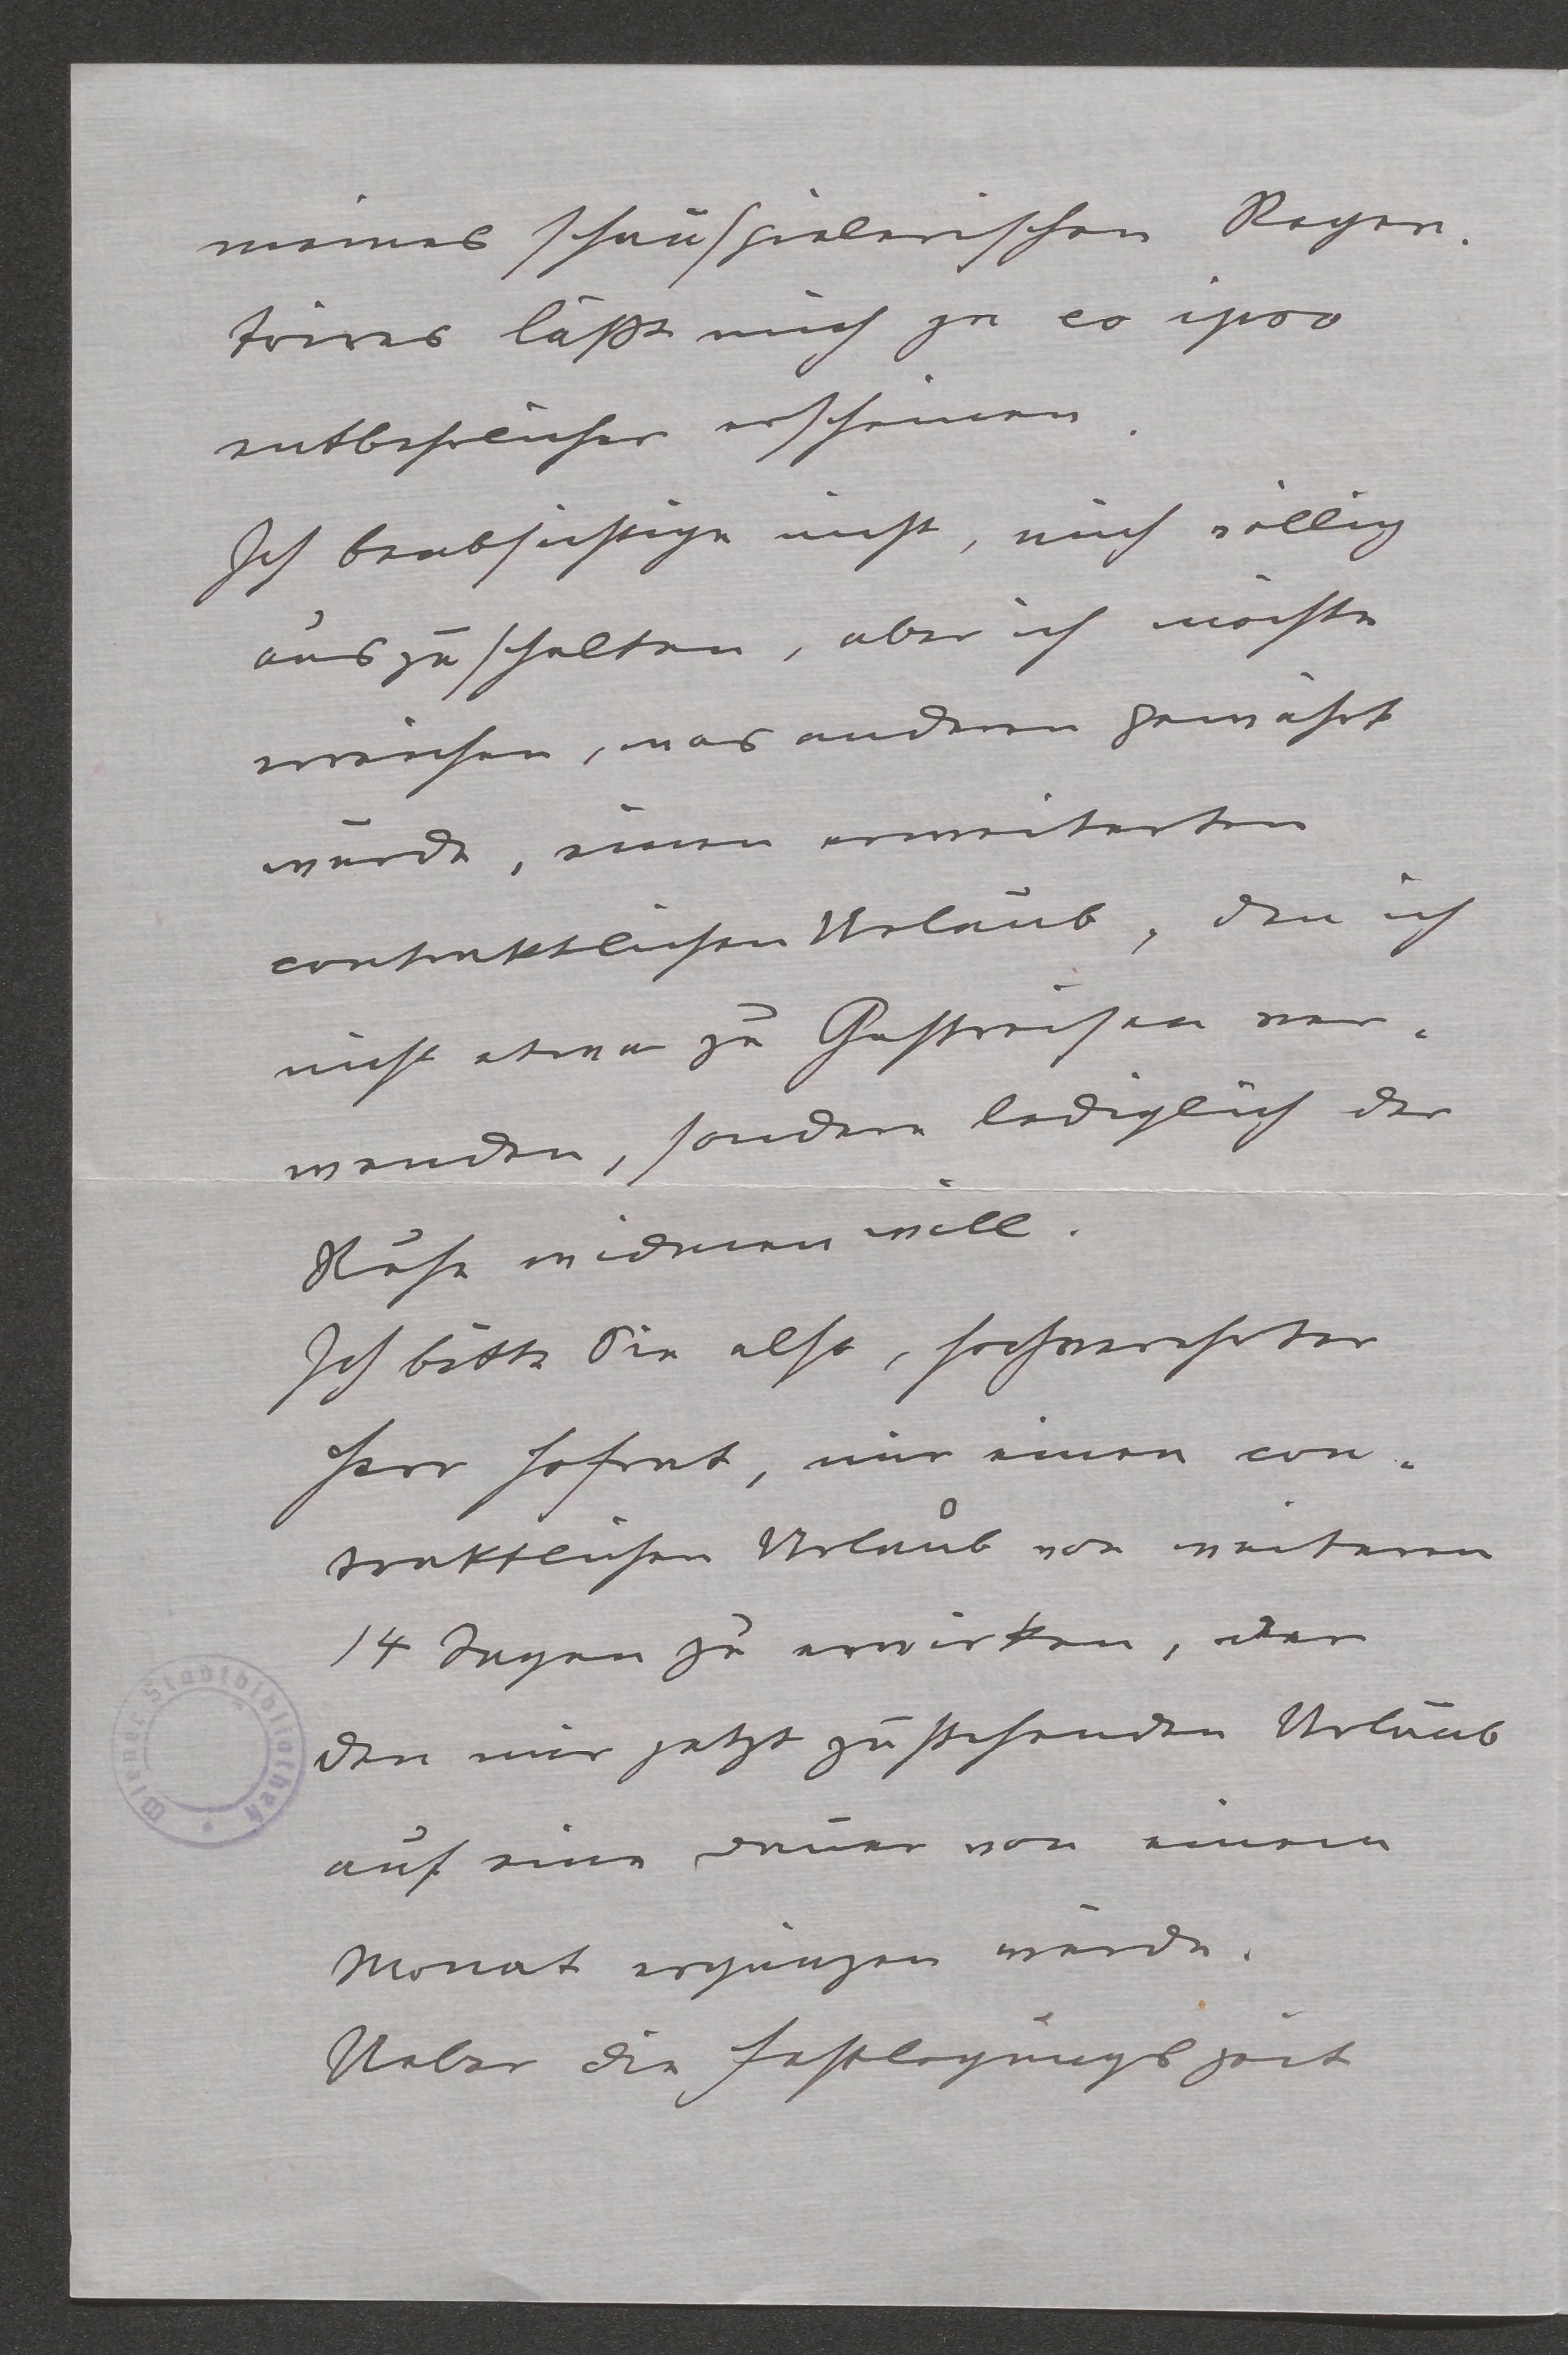 meines schauspielerischen Reper-
toires läßt mich ja eo ipso
entbehrlicher erscheinen.
Ich beabsichtige nicht, mich völlig
auszuschalten, aber ich möchte
erreichen, was anderen gewährt
wurde, einen erweiterten
contraktlichen Urlaub, den ich
nicht etwa zu Gastreisen ver-
wenden, sondern lediglich der
Ruhe widmen will.
Ich bitte Sie also, hochverehrter
Herr Hofrat, mir einen con-
traktlichen Urlaub von weiteren
14 Tagen zu erwirken, der
den mir jetzt zustehenden Urlaub
auf eine Dauer von einem
Monat ergänzen würde.
Ueber die Festlegungszeit
Wiener Stadtbibliothek